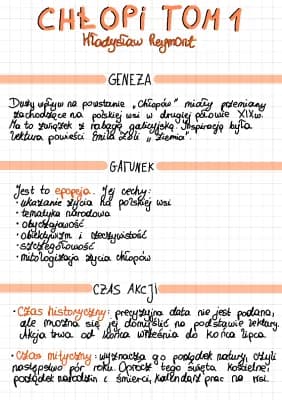 CHŁOPI TOM 1
Władysław Reymont
GENEZA
Duży wpływ na powstanie „Chłopów” miały przemiany
zachodzące na polskiej wsi w drugiej połowie XIXw.
Ma to związek z rabacją galicyjską. Inspiracją była
lektura powieści Emila Zoli „Ziemia”.
GATUNEK
Jest to epopeja. Jej cechy:
• ukazanie życia na polskiej wsi
• tematyka narodowa
• obyczajowość
• obiektywizm i rzeczywistość
• szczegółowość
• mitologizacja życia chłopów
CZAS AKCJI
• Czas historyczny: precyzyjna data nie jest podana,
ale można się jej domyślić na podstawie lektury.
Akcja trwa od końca września do końca lipca.
• Czas mityczny: wyznacza go porządek natury, czyli
następstwo pór roku. Oprócz tego święta kościelne,
porządek narodzin i śmierci, kalendarz prac na wsi.